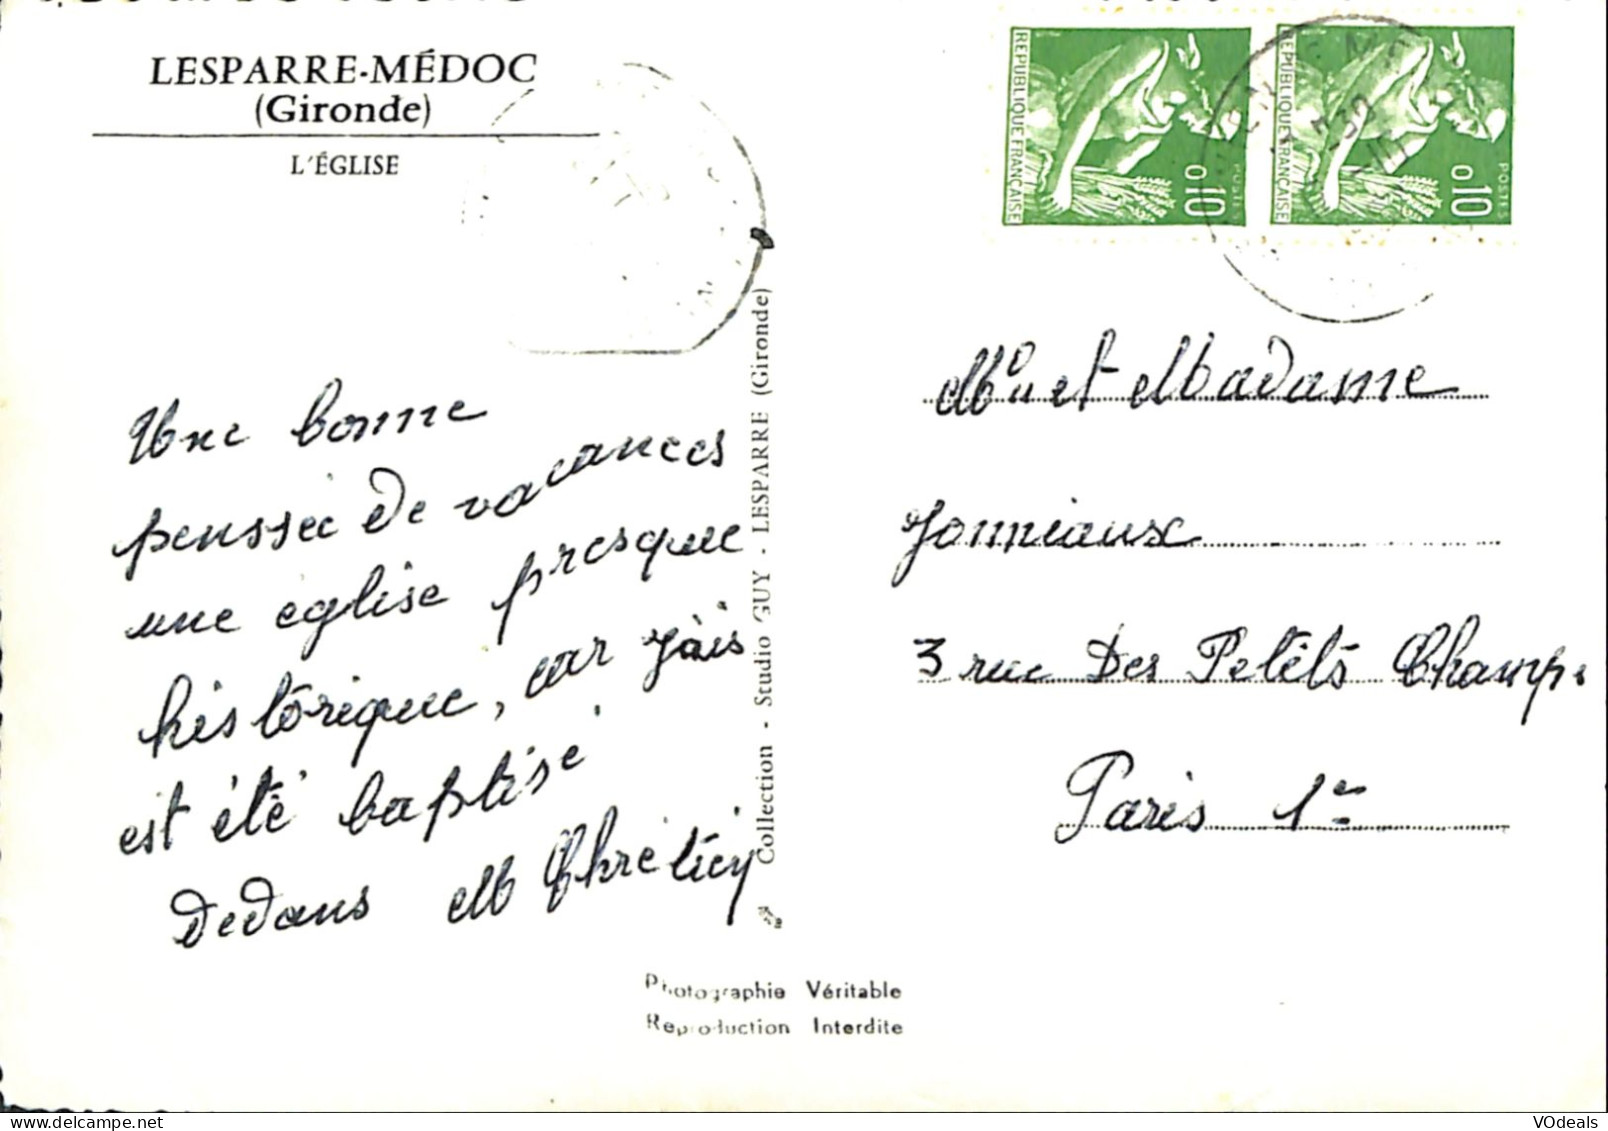 LESPARRE-MÉDOC
(Gironde)
L'ÉGLISE
Une bonne
penssée de vacances
une église presque
historique, car j'ais
est été baptisé
dedans M Chrétien
Collection - Studio GUY - LESPARRE (Gironde)
Photographie Véritable
Reproduction Interdite
REPUBLIQUE FRANÇAISE
0,10
POSTES
REPUBLIQUE FRANÇAISE
0,10
POSTES
Mr et Madame
Jonniaux
3 rue Des Petits Champs
Paris 1er
VOdeals